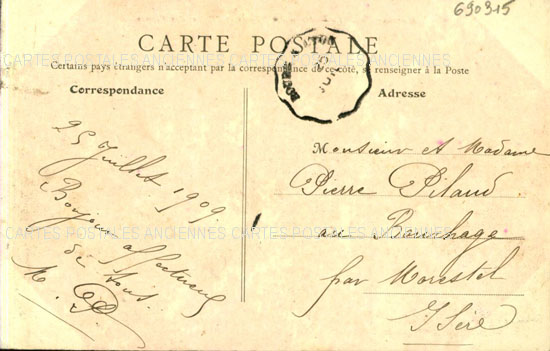 690915
CARTE POSTALE
Certains pays étrangers n'acceptant par la correspondance de ce côté, se renseigner à la Poste
Correspondance
Adresse
25 Juillet 1909
Monsieur et Madame
Pierre
au Bouchage
par Morestel
Isère
Bonjour affectueux
de
M.
CARTES POSTALES ANCIENNES CARTES POSTALES ANCIENNES
CARTES POSTALES ANCIENNES CARTES POSTALES ANCIENNES